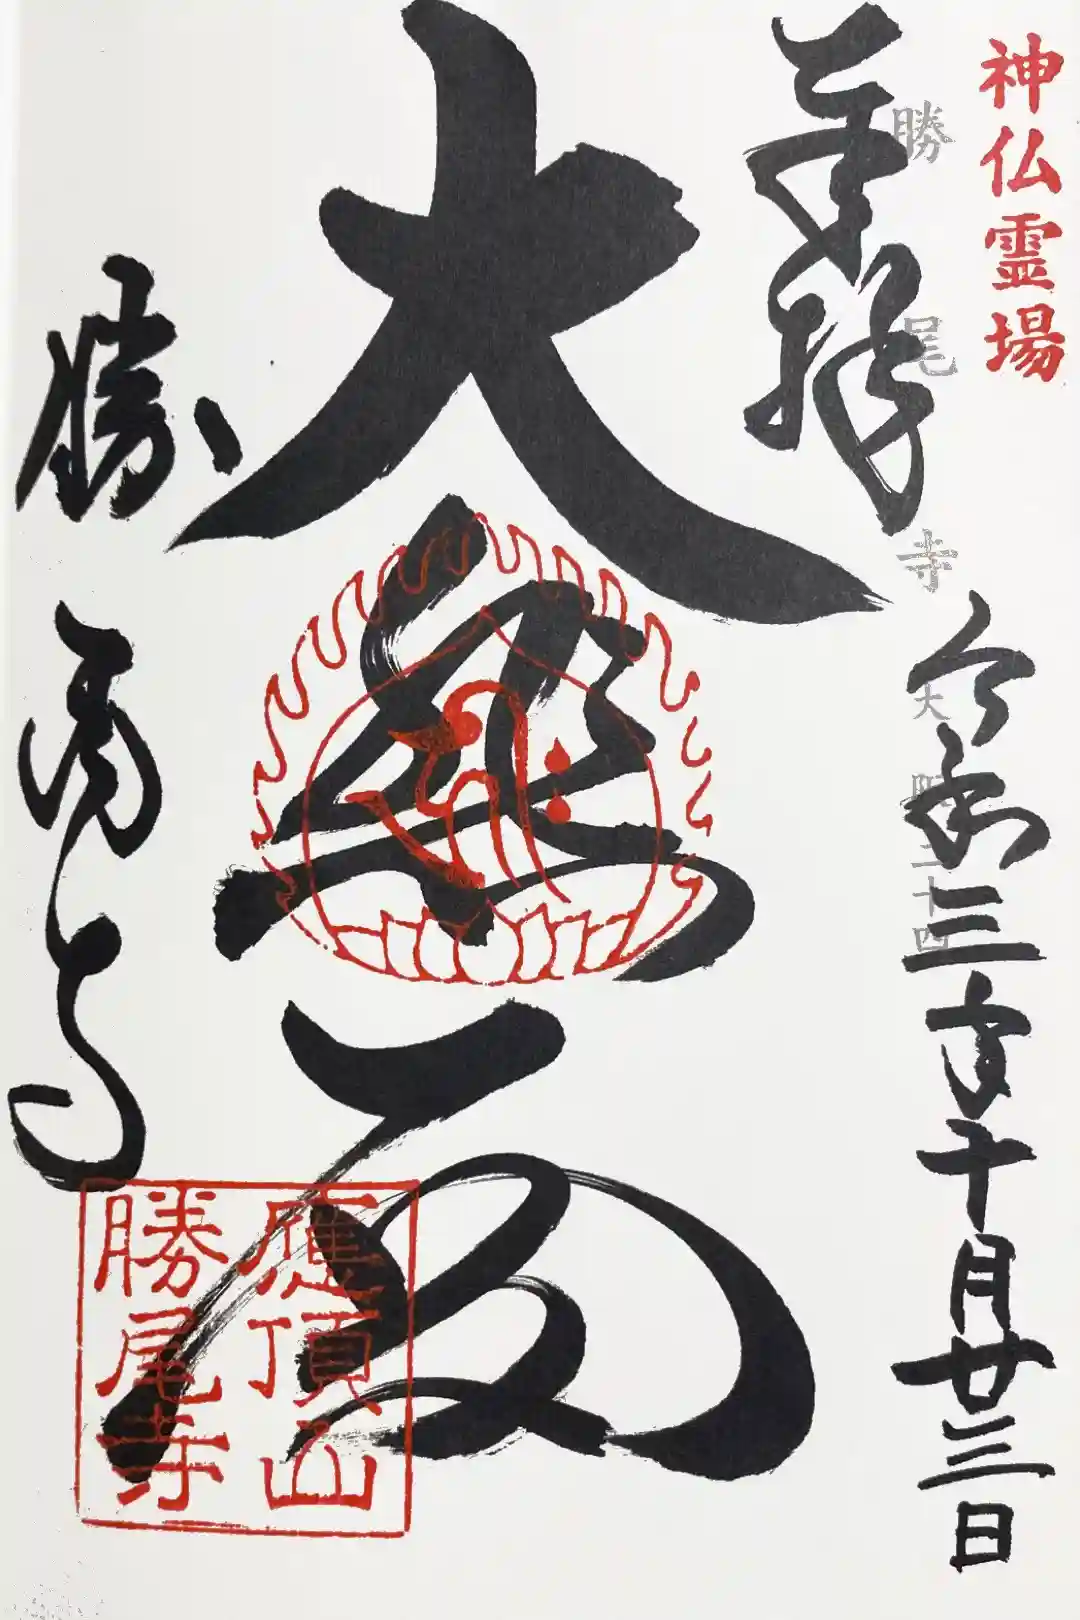 神仏霊場
勝尾寺 大阪二十四
奉拝
令和三年十月廿三日
大悲
勝尾寺
應頂山
勝尾寺